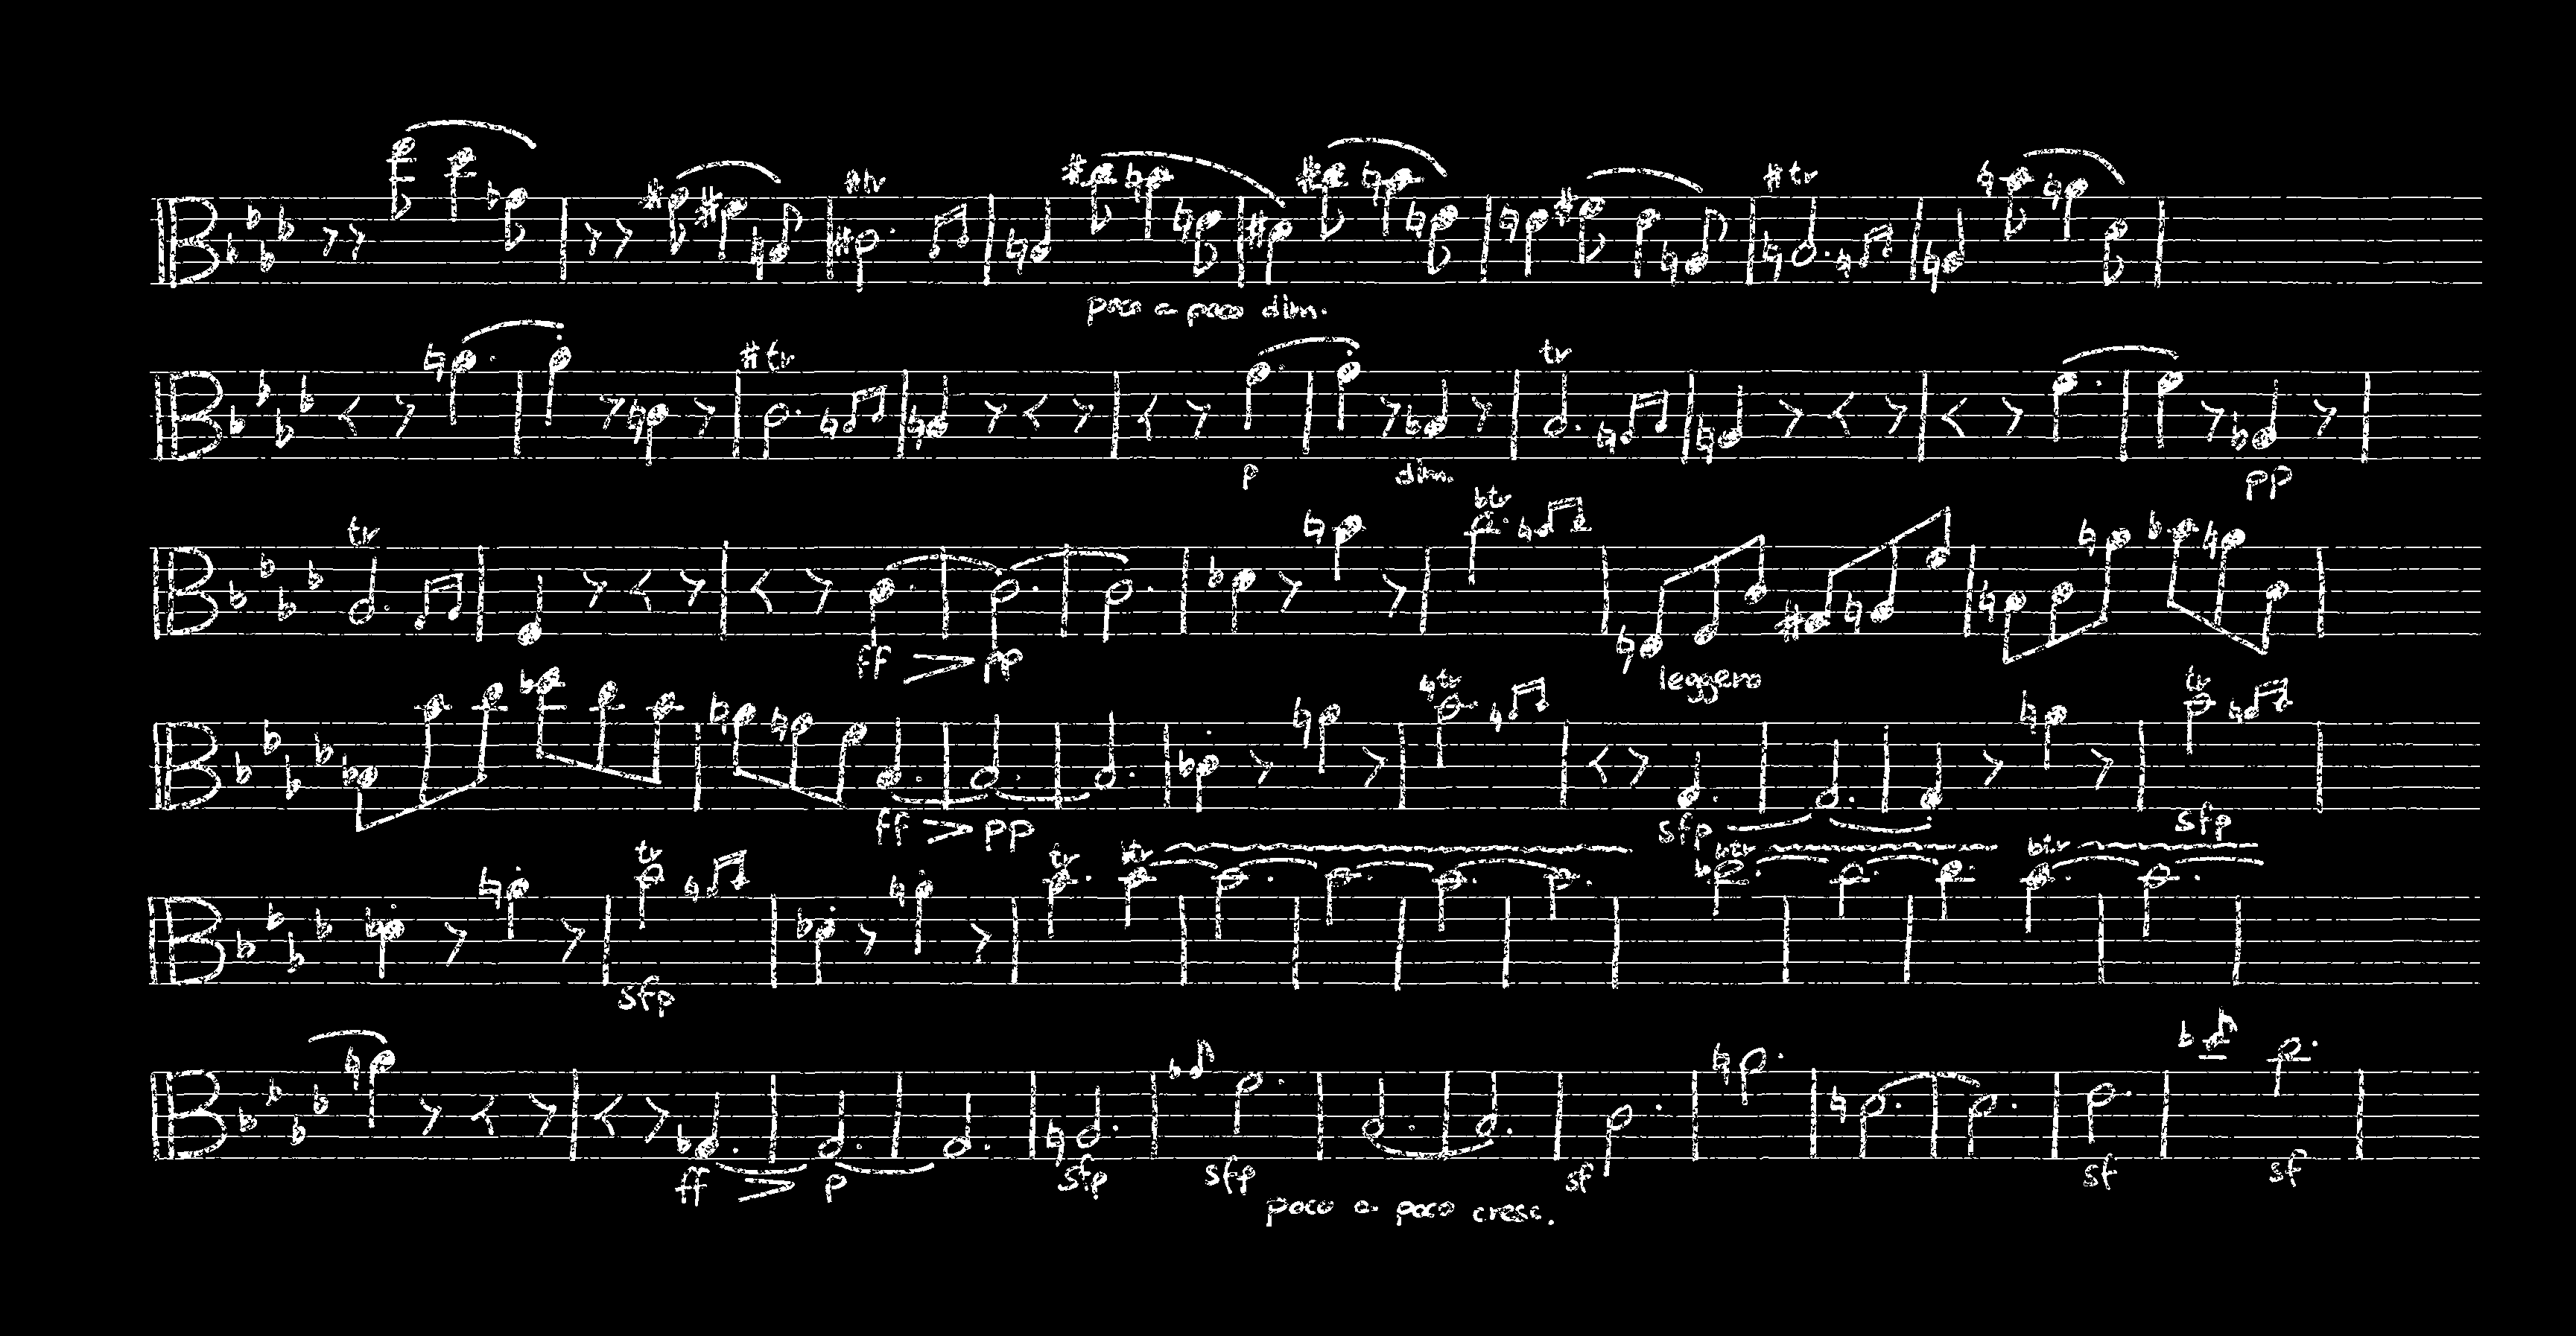 tr tr
poco a poco dim.
tr tr
p dim. pp
tr tr
ff pp leggero
tr tr
ff pp sfp sfp
tr tr tr tr tr
sfp
ff p sfp sfp sf sf sf
poco a poco cresc.